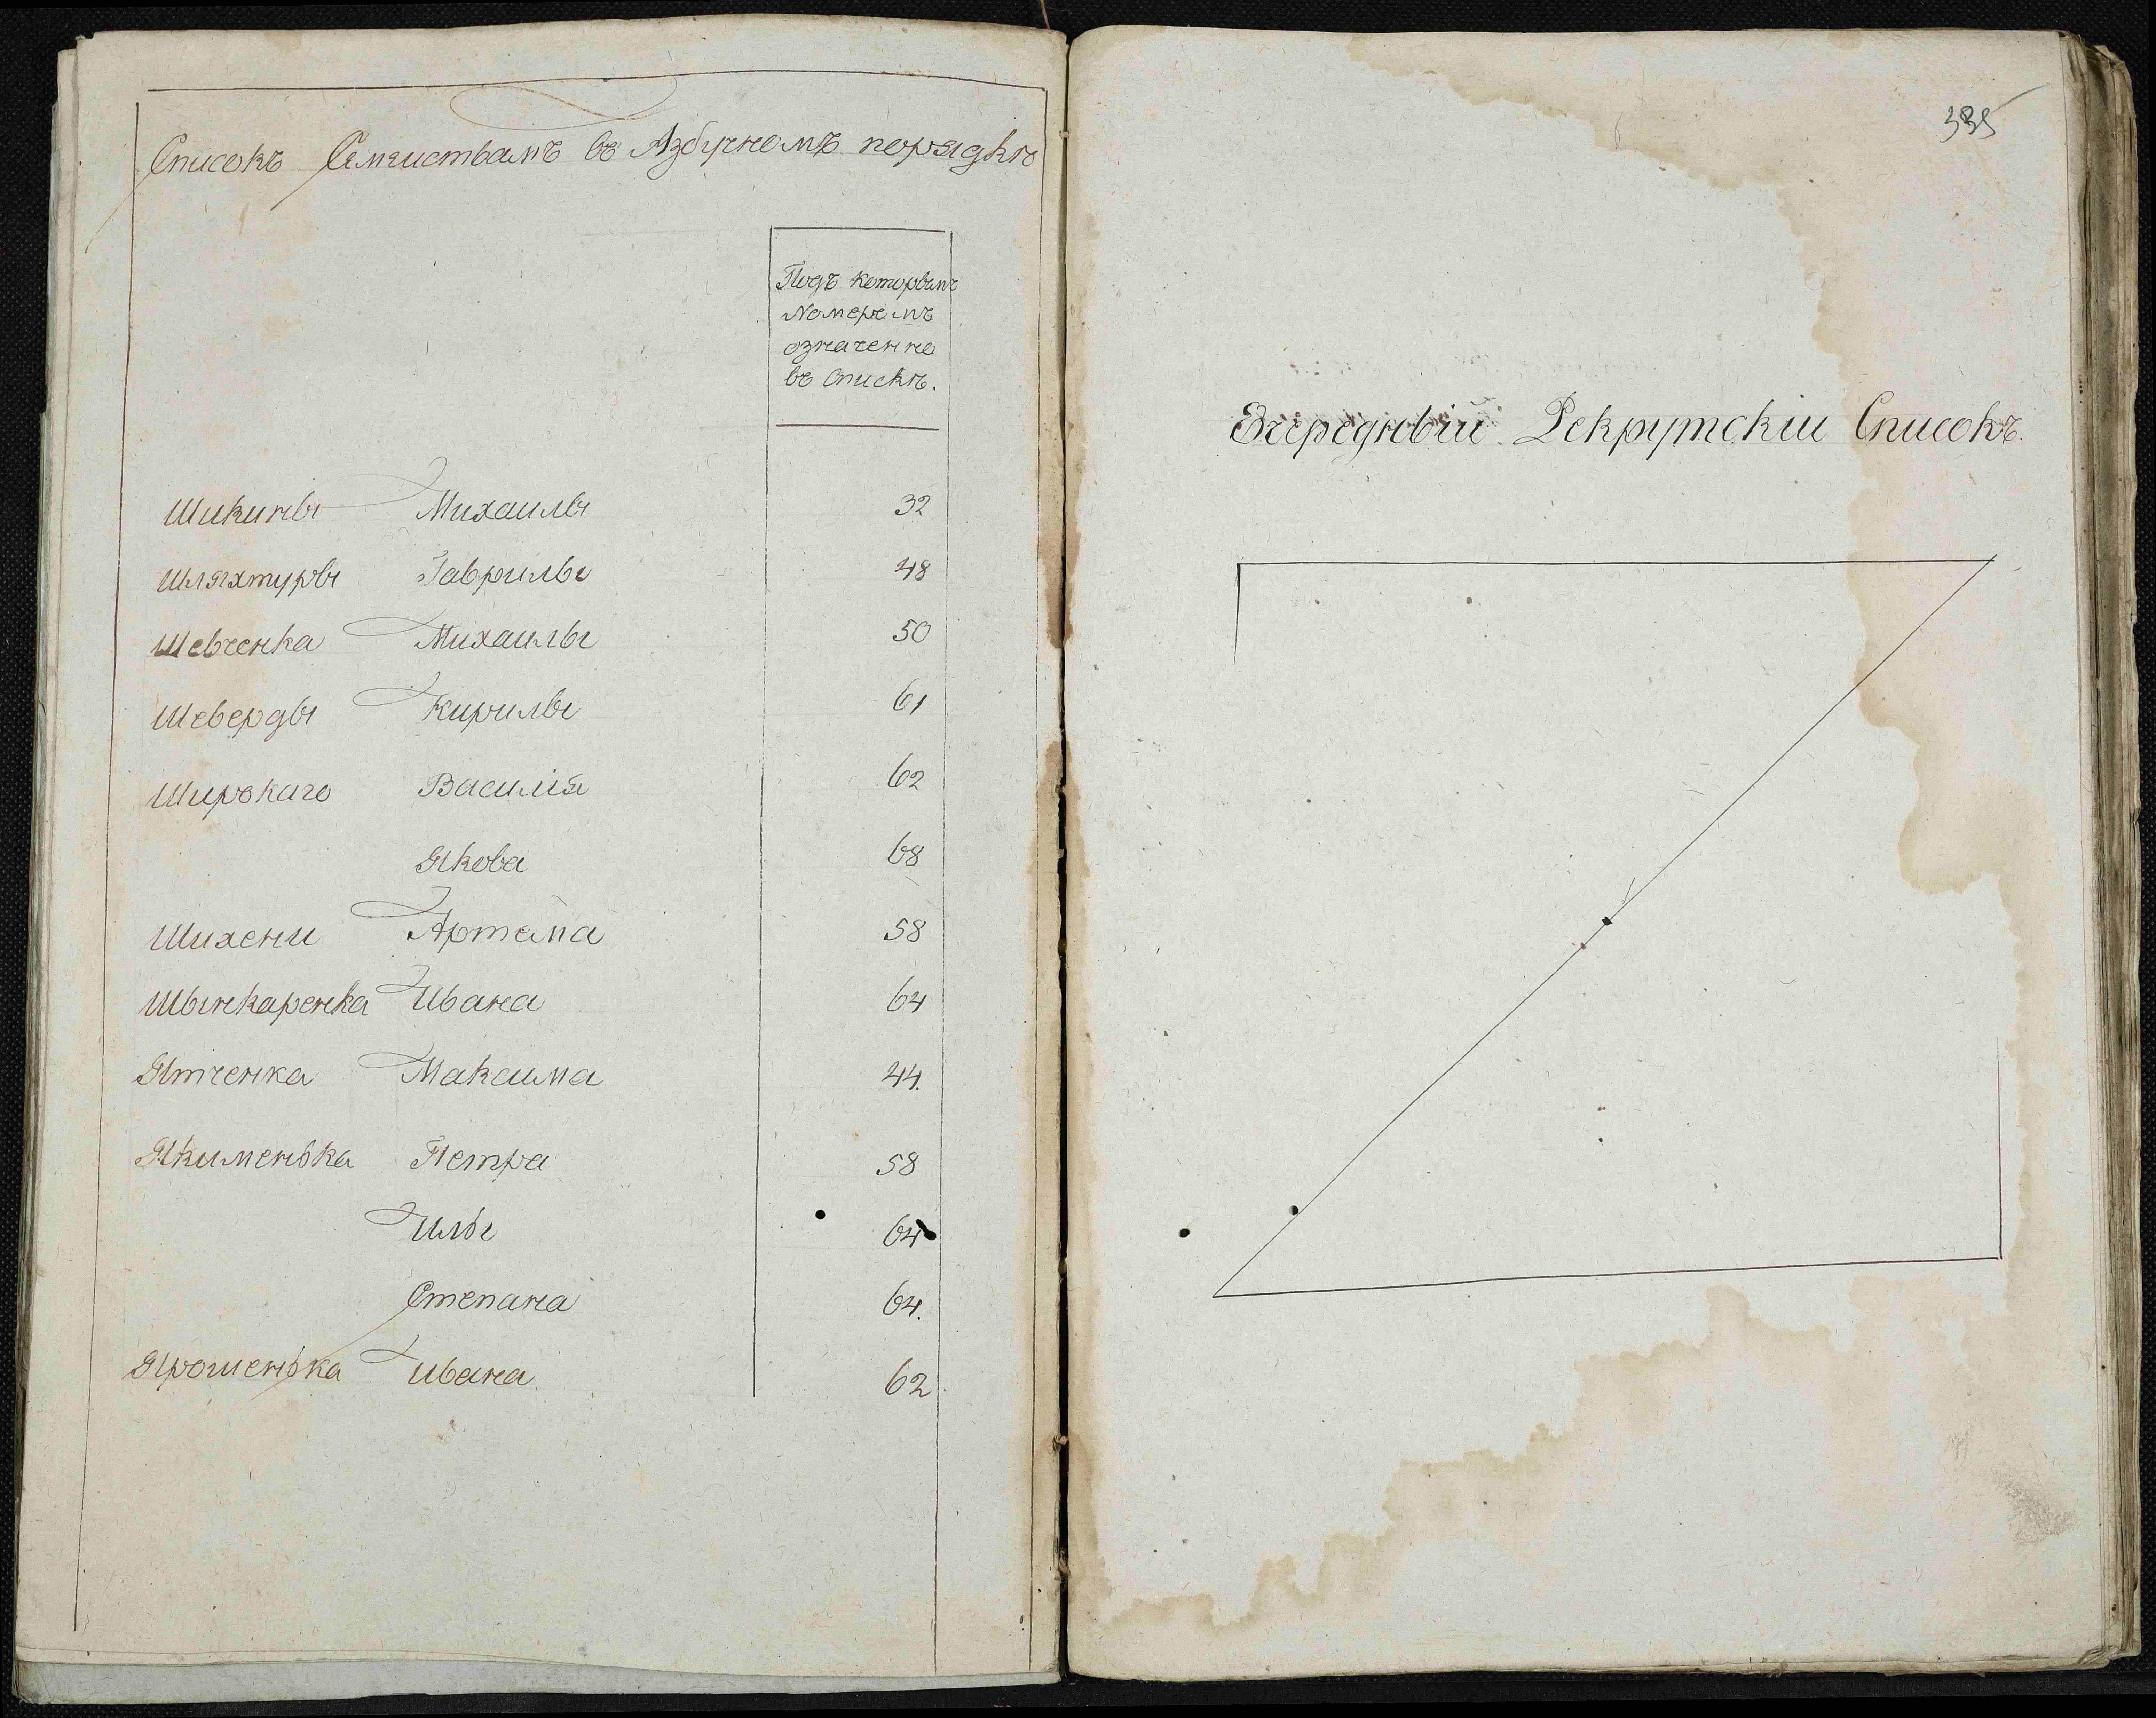 Списокъ Семеиствамъ въ Азбучномъ порядкѣ
Подъ которымъ
Номеромъ
означенно
въ Спискѣ.
Шикины Михаилы 32
Шляхтуры Гаврилы 48
Шевченка Михаилы 50
Шеверды Кирилы 61
Широкаго Василія 62
Якова 68
Шихени Артема 58
Шынкаренка Ивана 64
Ятченка Максима 44.
Якименька Петра 58
Ильи 64
Степана 64.
Ярошенька Ивана 62
Эчередновій Рекрутскіи Списокъ.